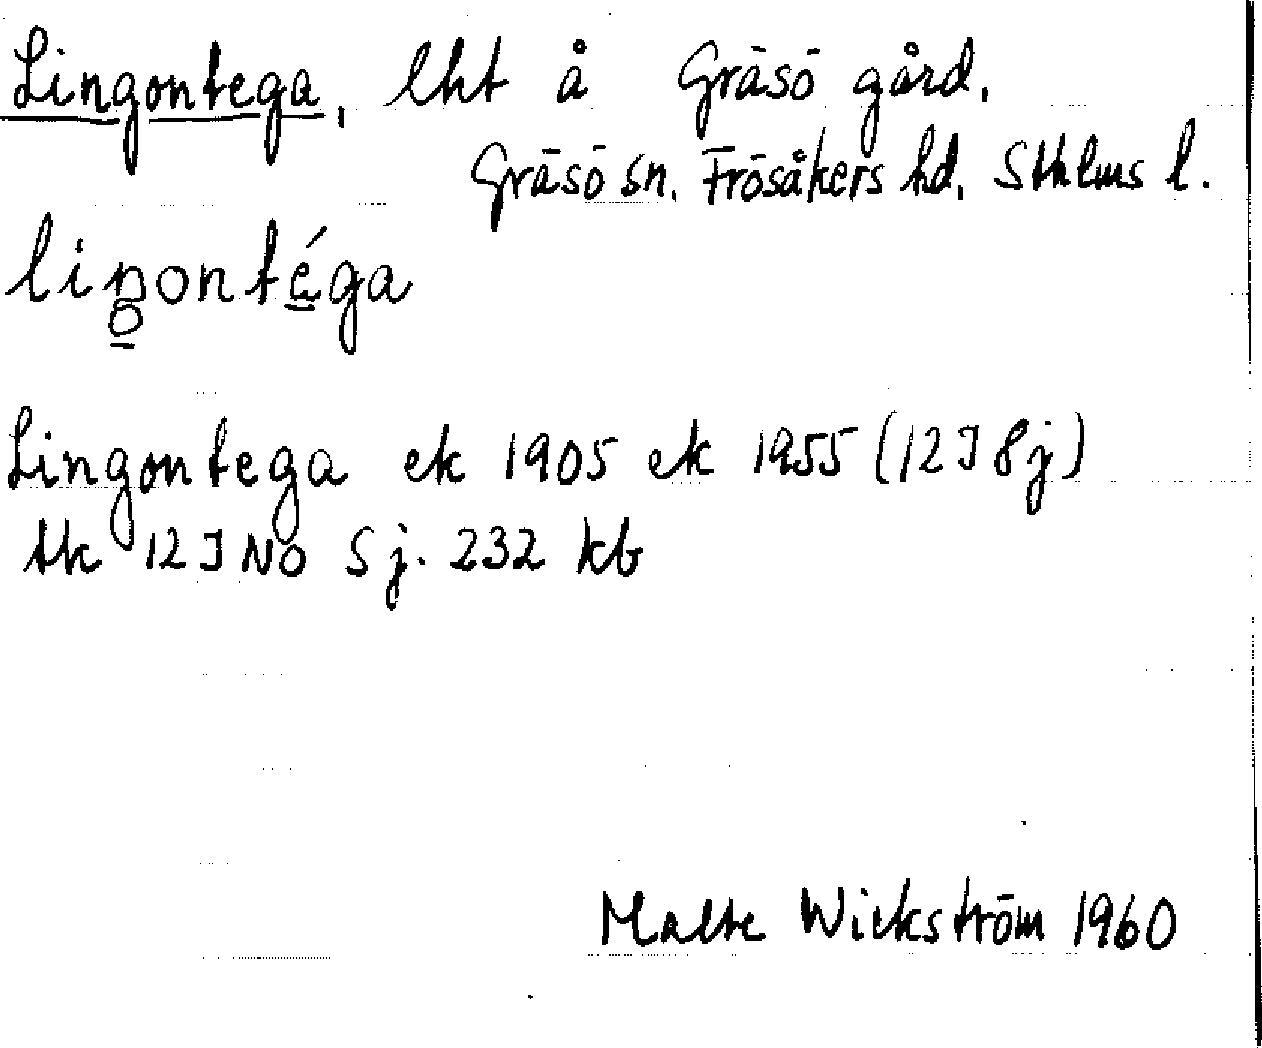 Lingontega, lht å Gräsö gård.
Gräsö sn. Frösåkers hd. Sthlms l.
liŋontéga
Lingontega ek 1905 ek 1955 (12I 8j)
tk 12 I NO 5j. 232 kb
Malte Wickström 1960